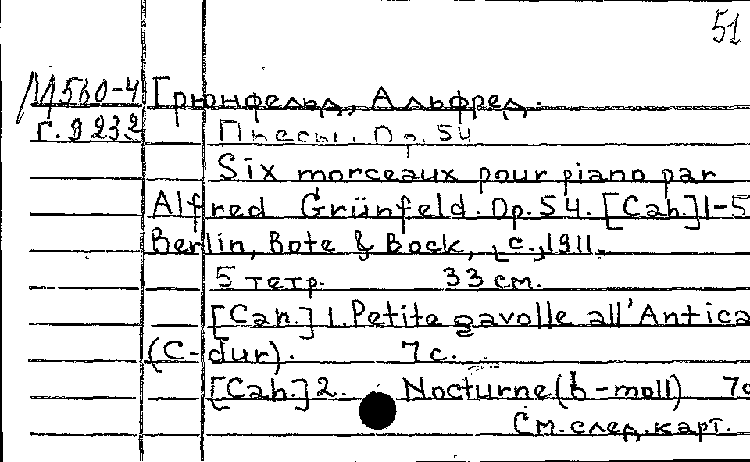 51
М 560-4 Грюнфельд, Альфред.
Г. 9 232 Пьесы. Op. 54
Six morceaux pour piano par
Alfred Grünfeld. Op. 54. [Cah.] 1-5
Berlin, Bote & Bock, [c., 1911.
5 тетр. 33 см.
[Cah.] 1. Petite gavotte all'Antica
(C-dur). 7 с.
[Cah.] 2. Nocturne (b-moll) 7с
См. след. карт.